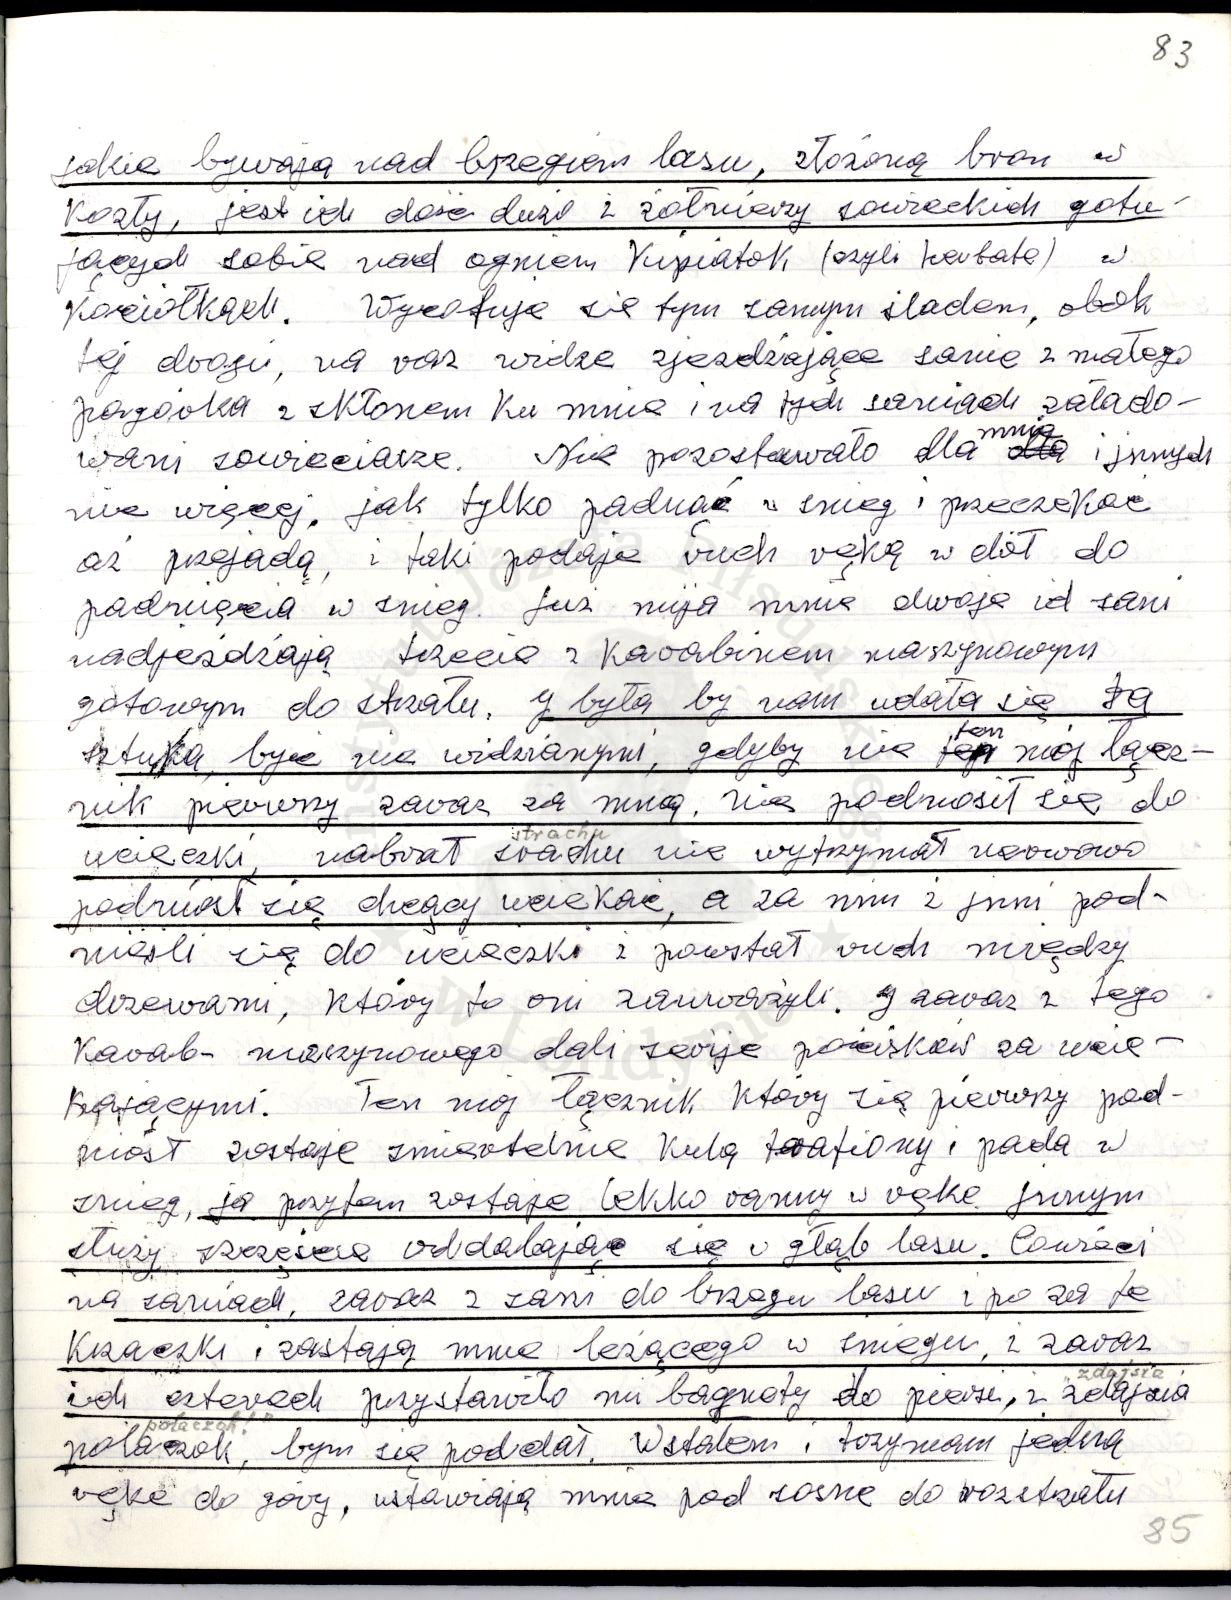 83
jakie bywają nad brzegiem lasu, złożoną bron w
Kozły, jest ich dość dużo i żołnierzy sowieckich gotu-
jących sobie nad ogniem Kipiatok (czyli herbatę) w
Kociołkach. Wycofuję się tym samym śladem, obok
tej drogi, na raz widzę zjeżdżające sanie z małego
pagórka z skłonem ku mnie i na tych saniach załado-
wani sowieciarze. Nie pozostawało dla mnie i jnnych
nie więcej, jak tylko padnąć w snieg i przeczekać
aż przejadą, i taki podaję ruch ręką w dół do
padnięcia w snieg. Już mija mnie dwoje ich sani
nadjeżdżają trzecie z Karabinem maszynowym
gotowym do strzału. J była by nam udała się ta
sztuka, być nie widzianymi, gdyby nie ten mój łącz-
nik pierwszy zaraz za mną, nie podnosił się do
ucieczki, nabrał srachu nie wytrzymał nerwowo
strachu
podniósł się chcący uciekać, a za nim i jnni pod-
nieśli się do ucieczki i powstał ruch między
drzewami, Który to oni zauważyli. J zaraz z tego
Karab- maszynowego dali serije pocisków za ucie-
Kającymi. Ten mój łącznik Który się pierwszy pod-
niósł zostaje smiertelnie Kulą trafiony i pada w
snieg, ja przytem zostaję lekko ranny w rękę jnnym
służy szczęście oddalając się w głąb lasu. Sowieci
na saniach, zaraz z sani do brzegu lasu i po za te
Krzaczki i zastają mnie leżącego w śniegu, i zaraz
ich czterech przystawiło mi bagnety do piersi, i zdajsia
"zdajsia
polaczok, bym się poddał. Wstałem i trzymam jedną
polaczok!"
rękę do góry, ustawiają mnie pod sosnę do rozstrzału
85
Instytut Józefa Piłsudskiego
w Londynie